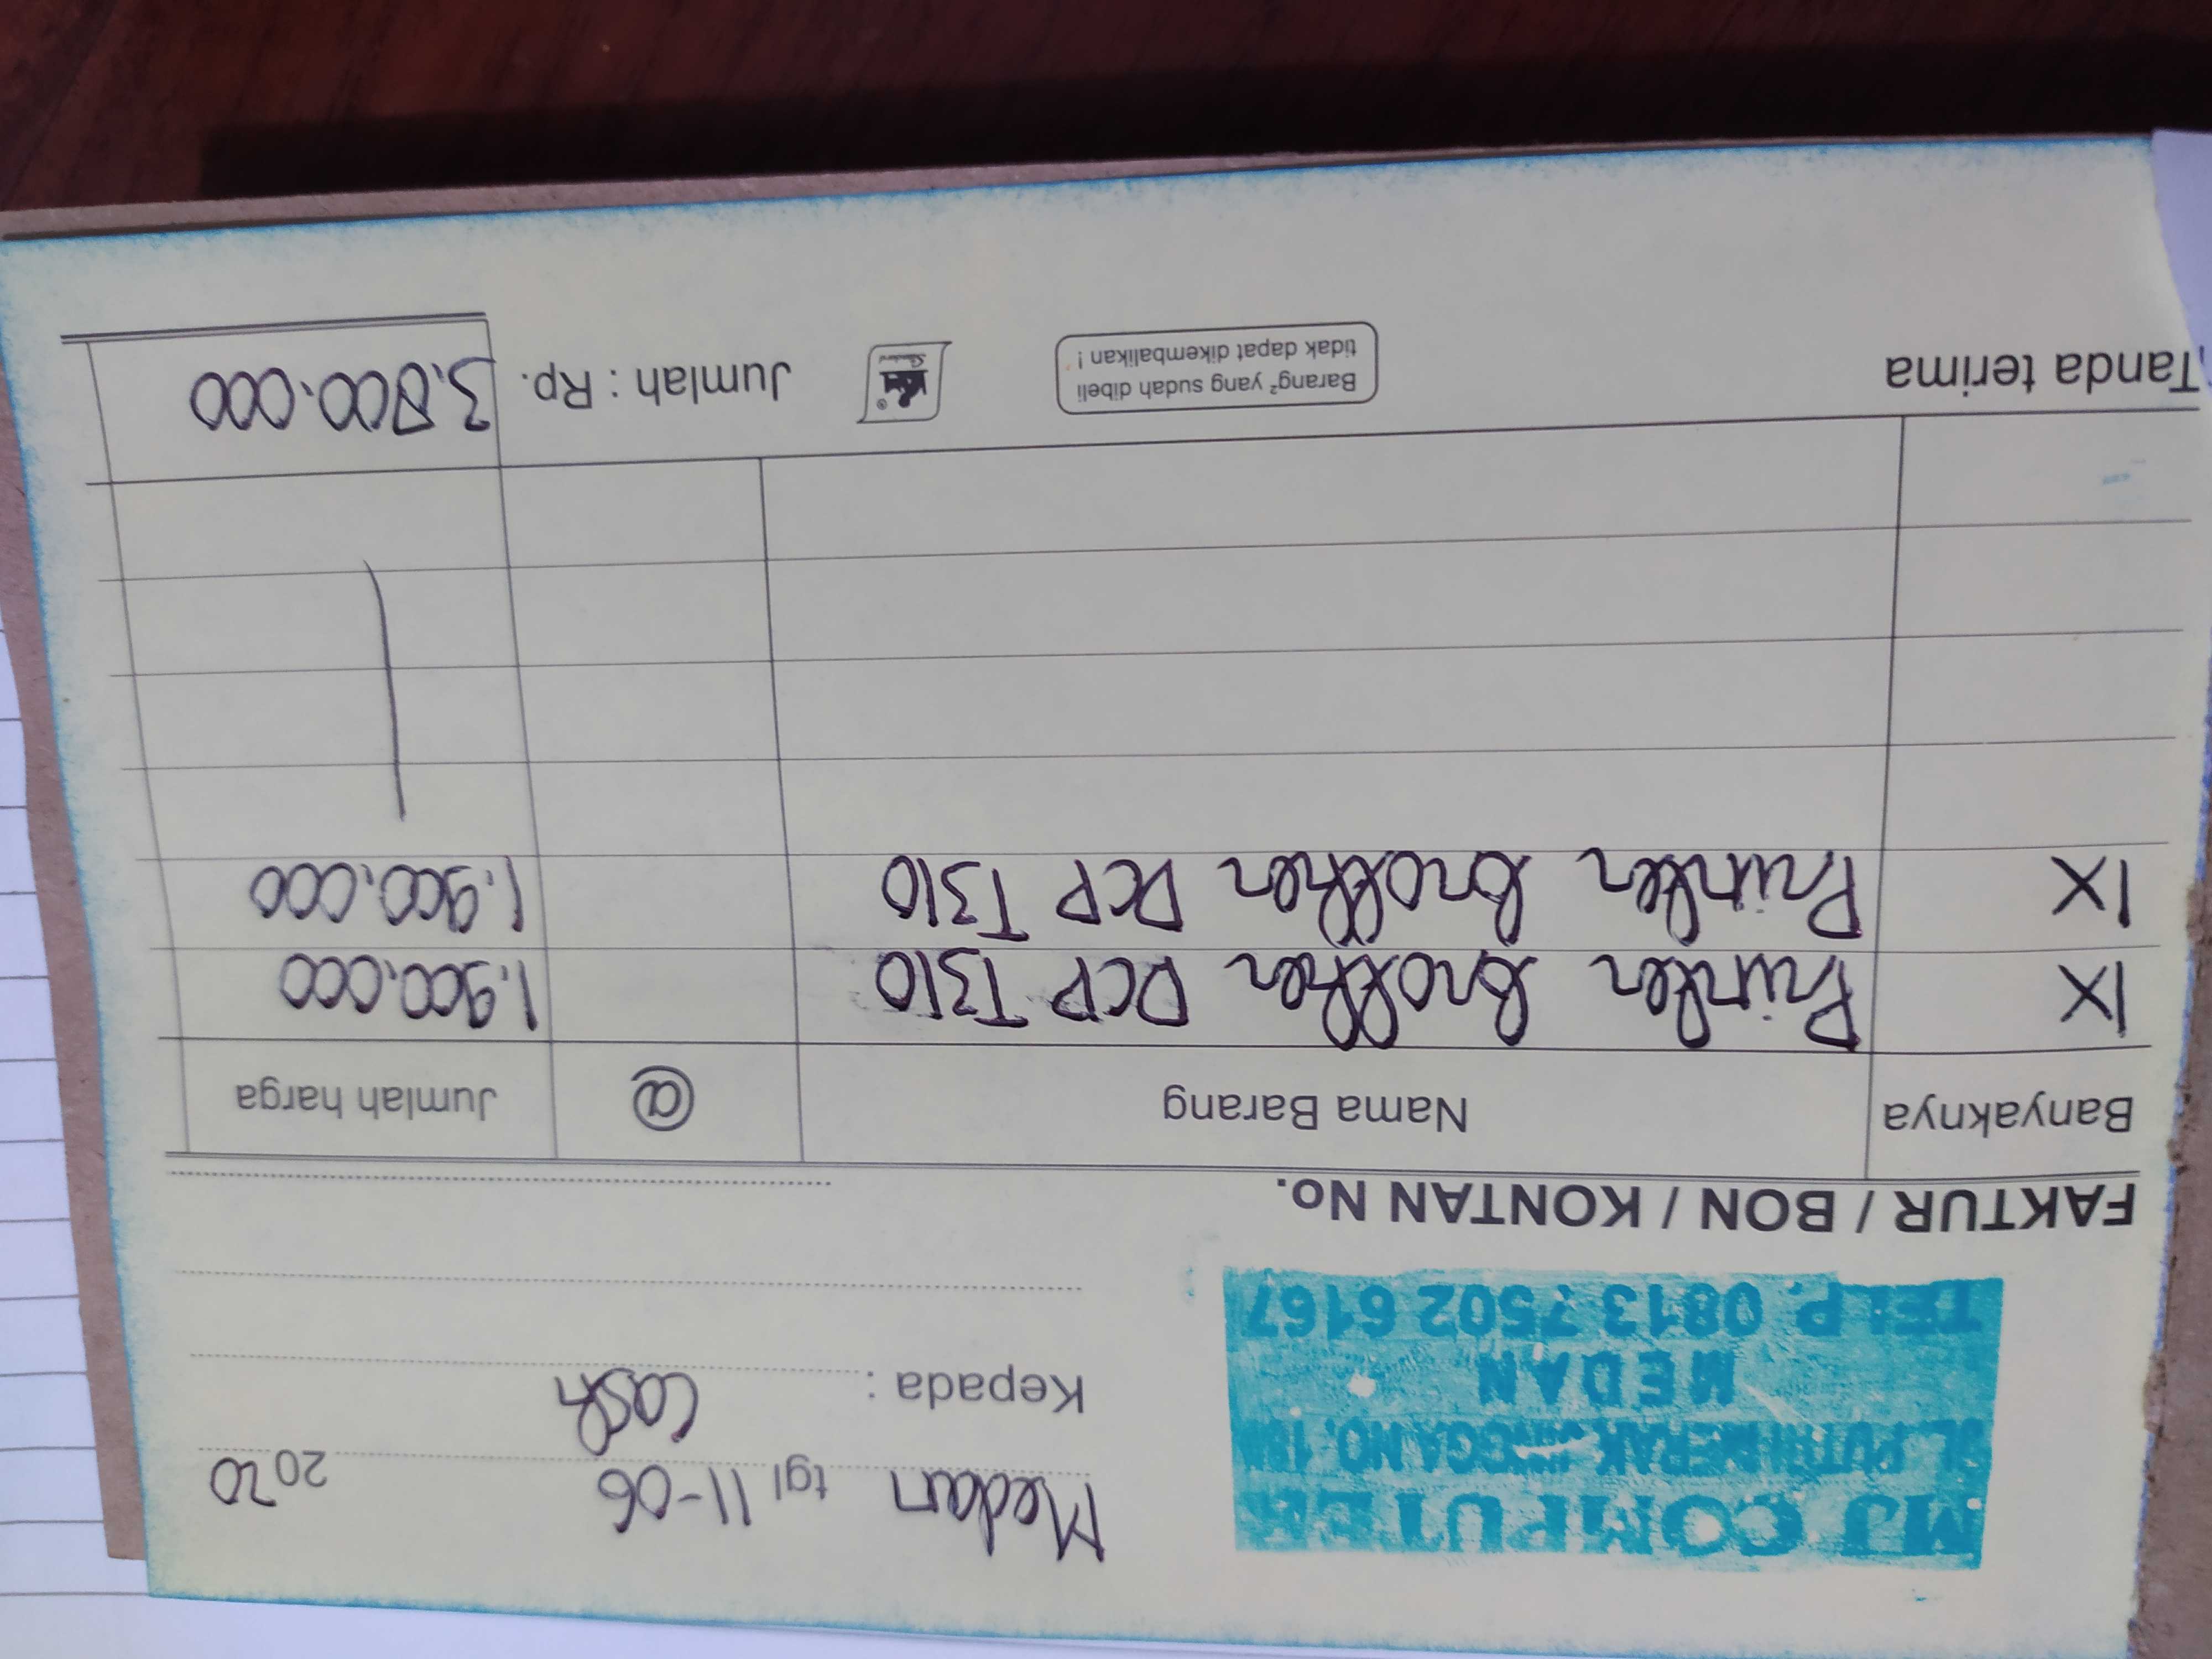 MJ COMPUTER
JL. PUTRI MERAK JINGGA NO.
MEDAN
TELP. 0813 7502 6167
Medan tgl 11-06 2020
Kepada : Cash
FAKTUR / BON / KONTAN No.
Banyaknya Nama Barang @ Jumlah harga
1X Printer Brother DCP T310 1.900.000
1X Printer Brother DCP T310 1.900.000
Tanda terima
Barang² yang sudah dibeli
tidak dapat dikembalikan !
Jumlah : Rp. 3.800.000